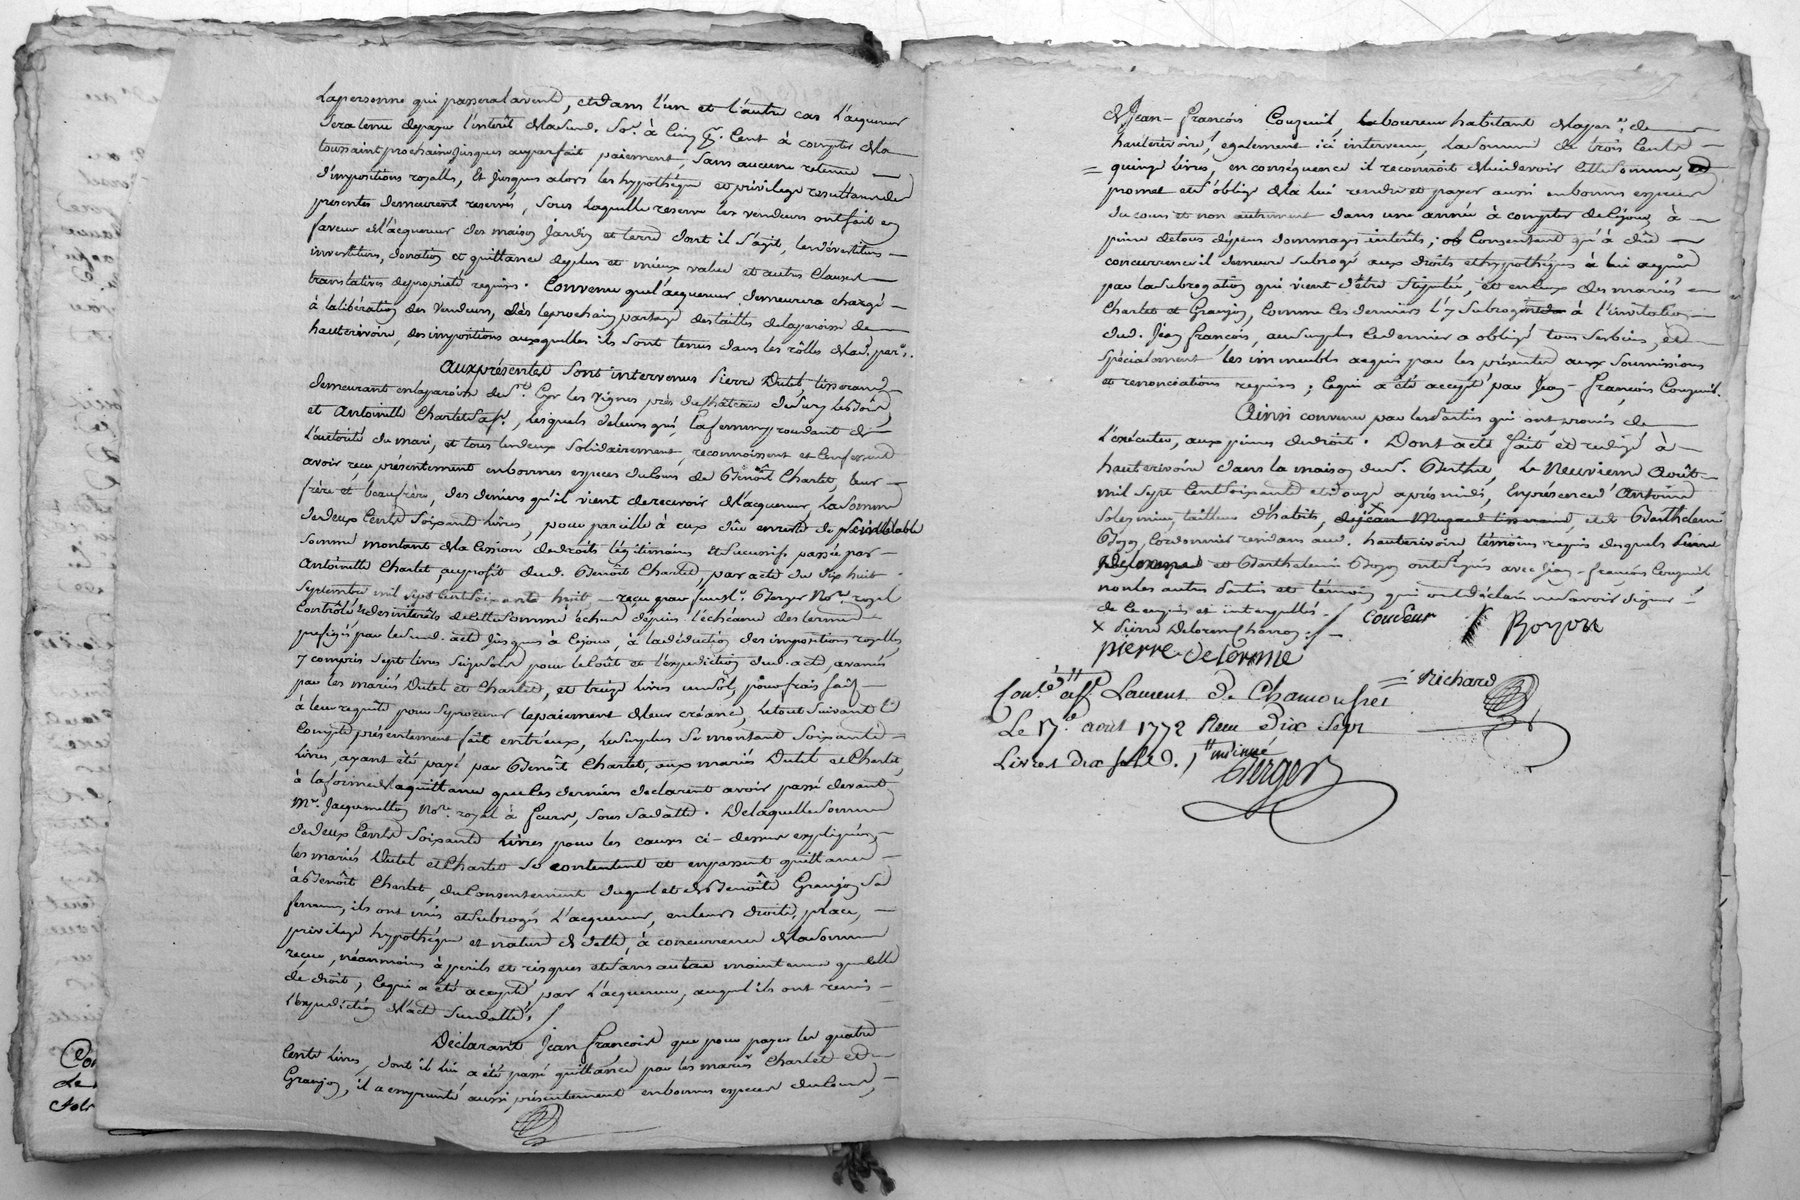 la personne qui passera la vente, et dans l'un et l'autre cas l'acquereur
sera tenu de payer l'interêt de la susd. so.e à cinq p. cent à compter de la
toussaint prochaine jusques au parfait paiement, sans aucune retenue
d'impositions royalles, et jusques alors les hypothéque et privilege resultans des
presentes demeurent reservés, sous laquelle reserve les vendeurs ont fait en
faveur de l'acquereur des maison jardin et terre dont il s'agit, les dévestitures
investitures, donation et quittance de plus et mieux value et autres clauses
translatives de proprieté requises. Convenu que l'acquereur demeurera chargé
à la libération des vendeurs, dès le prochain partage des tailles de la paroisse de
hauterivoire, des impositions auxquelles ils sont tenus dans les rôlles de lad. par.e.
Aux présentes sont intervenus Pierre Dutel tisserand
demeurant en la paroisse de St. Cyr les vignes près du château de Sury le bois
et Antoinette Charlet sa f.e, lesquels de leur gré, la femme procedant de
l'autorité du mari, et tous les deux solidairement, reconnoissent et confessent
avoir reçu présentement en bonnes especes du cours de Benoît Charlet, leur
frère et beaufrère, des deniers qu'il vient de recevoir de l'acquereur, la somme
de deux cents soixante livres, pour pareille à eux dûe en reste de semblable
somme montant de la cession de droits légitimaires et successifs passée par
Antoinette Charlet, au profit dud. Benoît Charlet, par acte du dix huit
septembre mil sept cent soixante huit reçu par Berger No.re royal
contrôlé et des interêts de cette somme échus depuis l'échéance des termes
prefigés par le susd. acte jusques à ce jour, à la déduction des impositions royalles,
y compris sept livres six sols pour le coût et l'expedition dud. acte, avancés
par les mariés Dutel et Charlet, et treize livres un sol, pour frais faits
à leur requête pour se procurer le paiement de leur créance, le tout suivant le
compte présentement fait entr'eux, le surplus se montant soixante
livres, ayant été payé par Benoît Charlet, aux mariés Dutel et Charlet,
à la forme de la quittance que les derniers declarent avoir passé devant
Me. Jacquemetton No.re royal à feurs, sous sa datte. De laquelle somme
de deux cents soixante livres pour les causes ci-dessus expliquées,
les mariés Dutel et Charlet se contentent et en passent quittance
à Benoît Charlet, du consentement duquel et de Benoîte Granjon sa
femme, ils ont mis et subrogé l'acquereur, en leurs droits, place,
privilege hypothéque et nature de dette, à concurrence de la somme
reçue, néanmoins à perils et risques et sans autre maintenue que celle
de droit, ce qui a été accepté par l'acquereur, auquel ils ont remis
l'expedition de l'acte susdatté.
Déclarant Jean françois que pour payer les quatre
cents livres, dont il lui a été passé quittance par les mariés Charlet et
Granjon, il a emprunté aussi présentement en bonnes especes du cours,
de Jean-françois Couzeuil, laboureur habitant de la par.e de
hauterivoire, également ici intervenu, la somme de trois cents
quinze livres, en conséquence il reconnoit lui devoir cette somme, et
promet et s'oblige de la lui rendre et payer aussi en bonnes especes
du cours et non autrement dans une année à compter de ce jour, à
peine de tous dépens dommages interêts; consentant qu'à dûe
concurrence il demeure subrogé aux droits et hypothéques à lui acquis
par la subrogation qui vient d'être stipulée, et en ceux des mariés
Charlet et Granjon, comme ces derniers l'y subrogent à l'invitation
dud. Jean françois, au surplus ce dernier a obligé tous ses biens, et
spécialement les immeubles acquis par les présentes aux soumissions
et renonciations requises; ce qui a été accepté par Jean-françois Couzeuil.
Ainsi convenu par les parties qui ont promis de
l'exécuter, aux peines de droit. Dont acte fait et redigé à
hauterivoire dans la maison du sr. Berthet, le neuvieme Août
mil sept cent soixante et douze après midi, en présence d'Antoine
tailleur d'habits, de jean tisserand, et de Barthelemi
Boyon, cordonnier residans aud. hauterivoire témoins requis desquels Pierre
Delorme et Barthelemi Boyon ont signé avec Jean-françois Couzeuil
non les autres parties et témoin qui ont déclaré ne savoir signer
de ce enquis et interpellés.
x Pierre Delorme charron
couseur
Boyon
pierre delorme
Richard
Con.lé à St Laurent De Chamousset
Le 17.e aout 1772 Reçu Dix sept
Livres dix sols
Berger